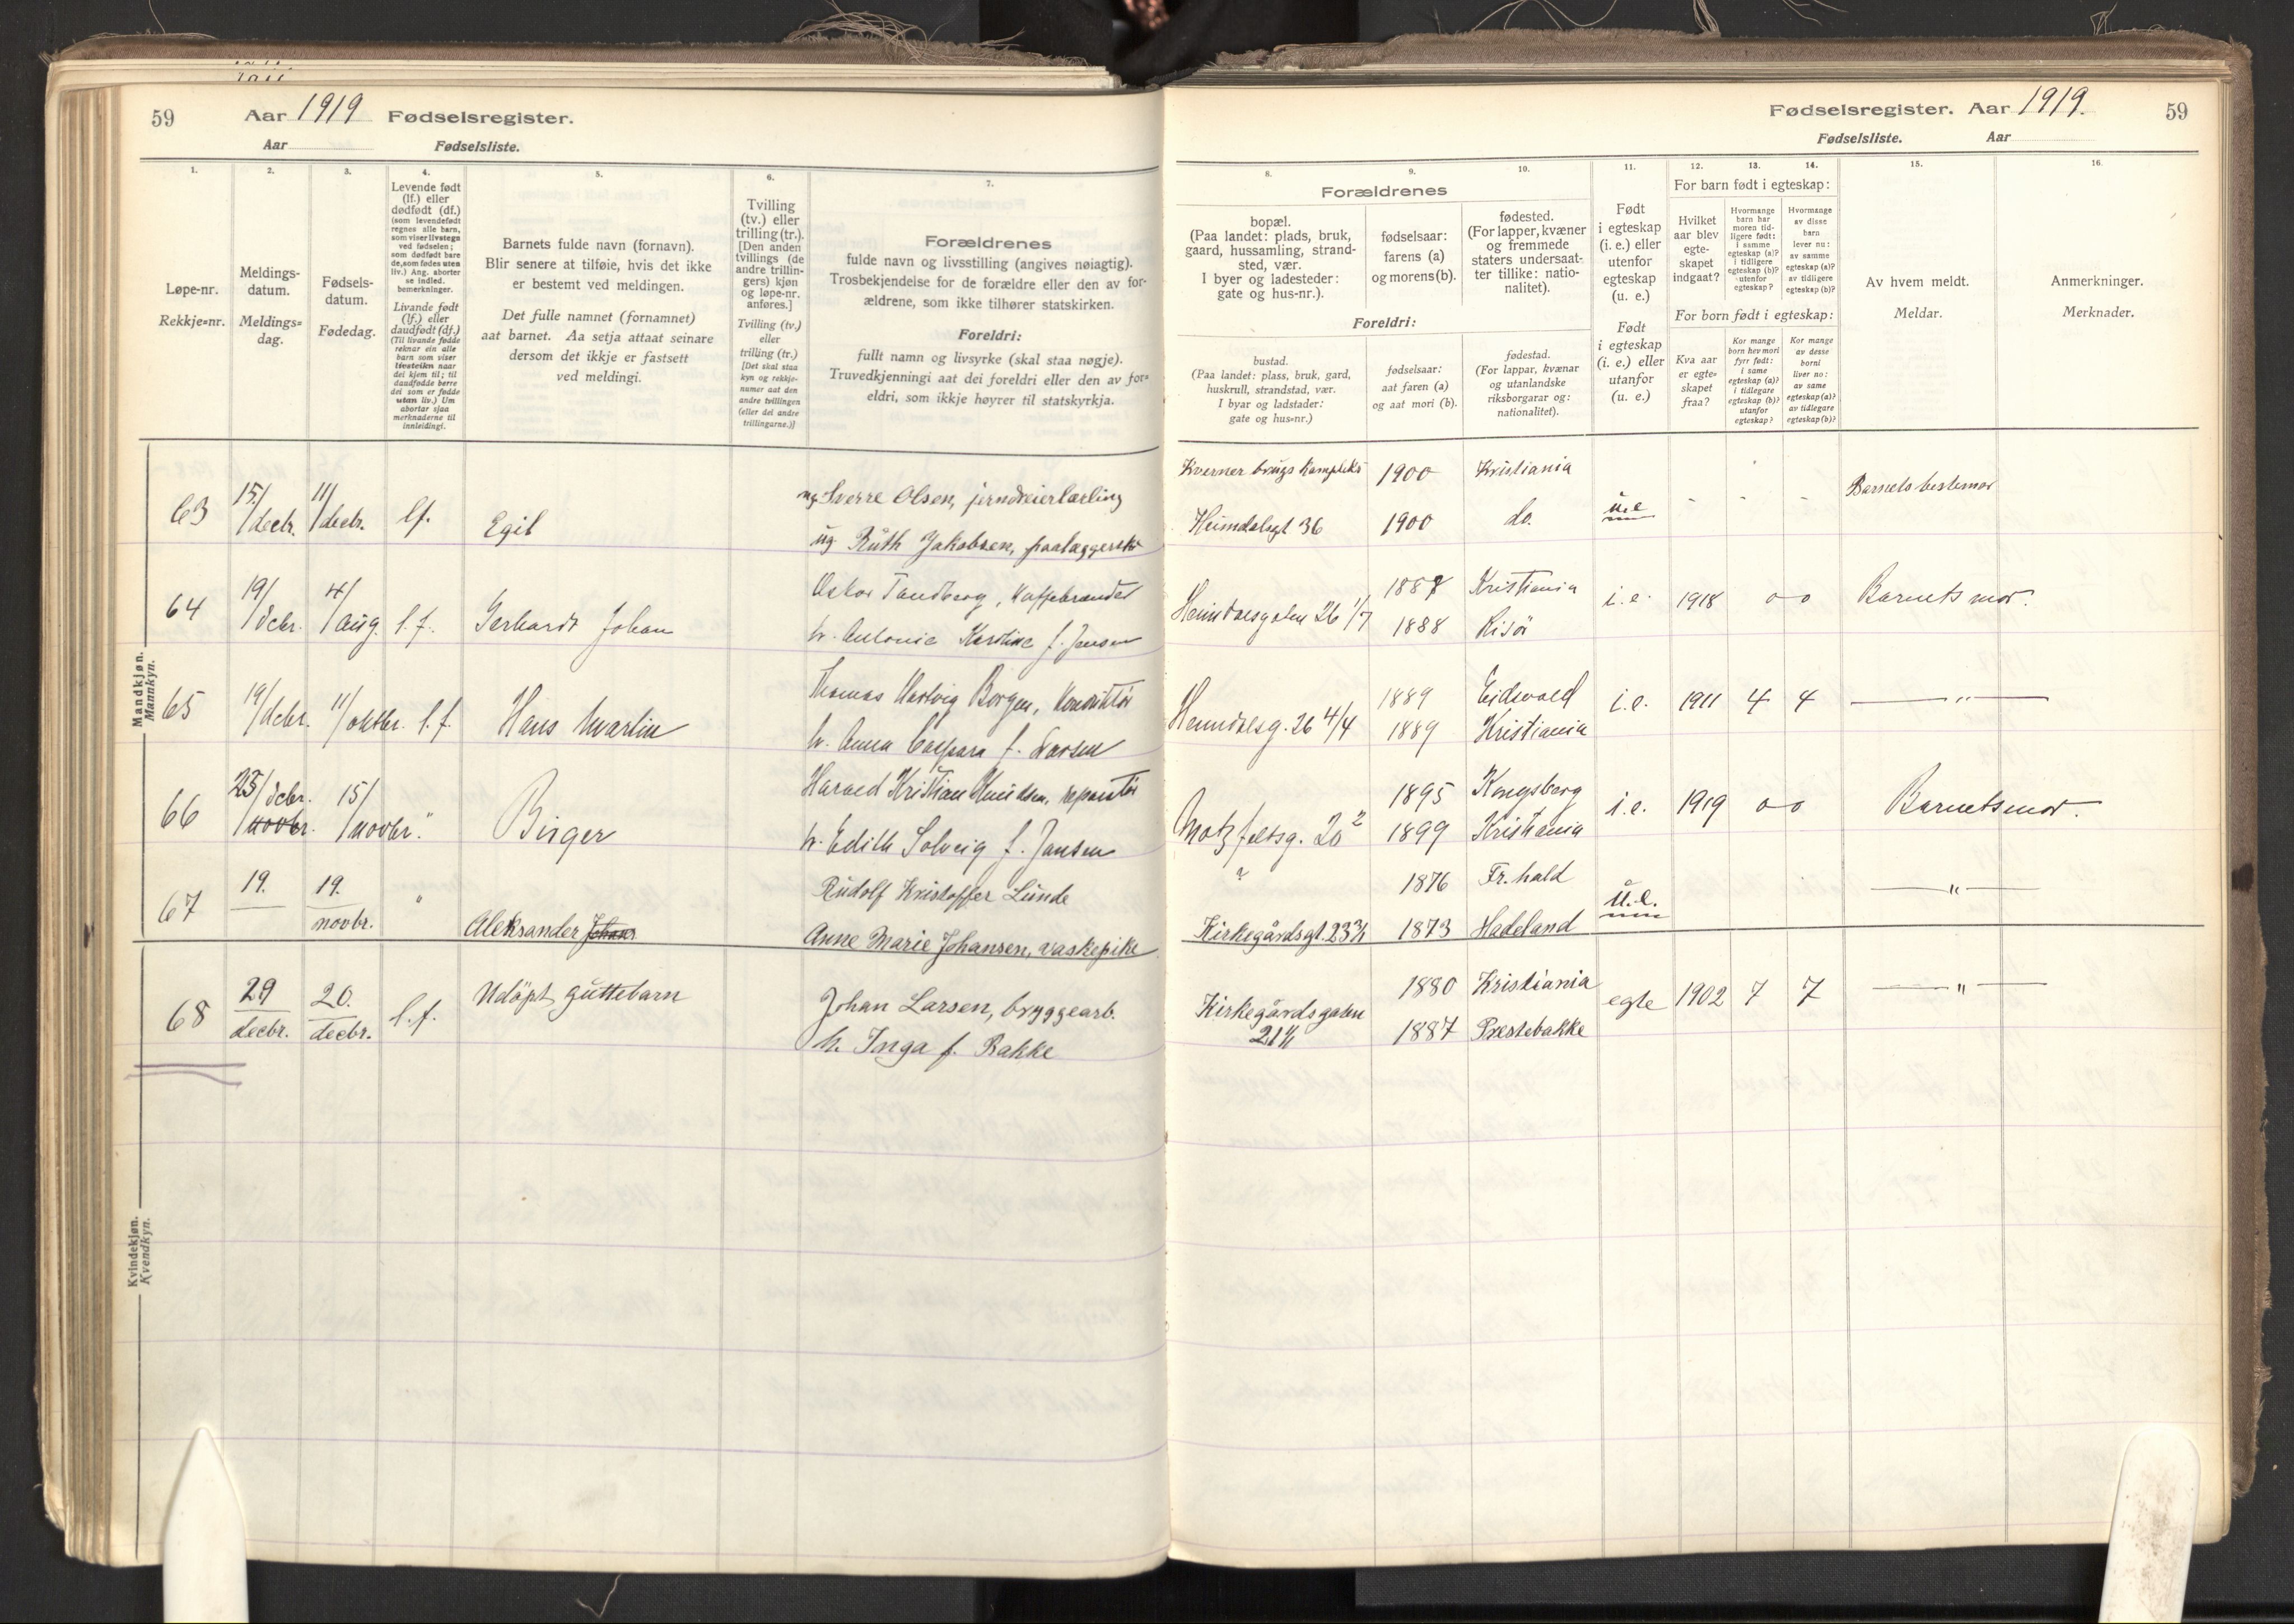 59
Aar 1919 Fødselsregister.
Aar Fødselsliste.
1.
Løpe-nr.
Rekkje=nr.
2.
Meldings-
datum.
Meldings=
dag.
3.
Fødsels-
datum.
Fødedag.
4.
Levende født
(lf.) eller
dødfødt (df.)
(som levendefødt
regnes alle barn,
som viser livstegn
ved fødselen;
som dødfødt bare
de, som fødes uten
liv.) Ang. aborter
se indled.
bemerkninger.
Livande født
(lf.) eller
daudfødt (df.)
(Til livande fødde
reknar ein alle
barn som viser
livsteikn naar
dei kjem til; til
daudfødde berre
dei som er fødde
utan liv.) Um
abortar sjaa
merknaderne til
innleidingi.
5.
Barnets fulde navn (fornavn).
Blir senere at tilføie, hvis det ikke
er bestemt ved meldingen.
Det fulle namnet (fornamnet)
aat barnet. Aa setja attaat seinare
dersom det ikkje er fastsett
ved meldingi.
6.
Tvilling
(tv.) eller
trilling (tr.).
[Den anden
tvillings (de
andre trillin-
gers) kjøn
og løpe-nr.
anføres.]
Tvilling (tv.)
eller
trilling (tr.)
[Det skal staa
kyn og rekkje-
numer aat den
andre tvillingen
(eller dei andre
trillingarne.)]
7.
Forældrenes
fulde navn og livsstilling (angives nøiagtig).
Trosbekjendelse for de forældre eller den av for-
ældrene, som ikke tilhører statskirken.
Foreldri:
fullt namn og livsyrke (skal staa nøgje).
Truvedkjenningi aat dei foreldri eller den av for=
eldri, som ikkje høyrer til statskyrkja.
Mandkjøn.
Mannkyn.
63 15./decbr. 11/decbr. lf. Egil
ug. Sverre Olsen, jerndreierlærling
ug Ruth Jakobsen, paalæggerske
64 19/decbr. 4/aug. l.f. Gerhardt Johan
Oskar Tandberg, Kaffebrænder
h. Antonie Kirstine f. Jensen
65 19/decbr. 11/oktbr. l.f. Hans Martin
Thomas Hartvig Borgen, Konduktør
h. Anna Caspara f. Larsen
66 23/decbr. novbr. 15/novbr. " Birger
Harald Kristian Knudsen, reparatør
h. Edith Solveig f. Jansen
67 19. 19. novbr. " Aleksander Johan
Rudolf Kristoffer Lunde
Anne Marie Johansen, vaskepike
68 29 decbr. 20. decbr. l.f. Udøpt guttebarn
Johan Larsen, bryggearb.
h. Inga f. Bakke
Kvindekjøn.
Kvendkyn.
Fødselsregister. Aar 1919. 59
Fødselsliste. Aar
8. 9. 10.
Forældrenes
bopæl.
(Paa landet: plads, bruk,
gaard, hussamling, strand-
sted, vær.
I byer og ladesteder:
gate og hus-nr.).
fødselsaar:
farens (a)
og morens (b).
fødested.
(For lapper, kvæner
og fremmede
staters undersaat-
ter tillike: natio-
nalitet).
Foreldri:
bustad.
(Paa landet: plass, bruk, gard,
huskrull, strandstad, vær.
I byar og ladstader:
gate og hus=nr.)
fødselsaar:
aat faren (a)
og aat mori (b).
fødestad.
(For lappar, kvænar
og utanlandske
riksborgarar og:
nationalitet).
11.
Født
i egteskap
(i. e.) eller
utenfor
egteskap
(u. e.)
Født
i egteskap
(i. e.) eller
utanfor
(u. e.)
12. 13. 14.
For barn født i egteskap:
Hvilket
aar blev
egte-
skapet
indgaat?
Hvormange
barn har
moren tid-
ligere født:
i samme
egteskap (a)?
i tidligere
egteskap (b)?
utenfor
egteskap?
Hvormange
av disse
barn
lever nu:
av samme
egteskap (a)?
av tidligere
egteskap (b)?
For born født i egteskap:
Kva aar
er egte=
skapet
fraa?
Kor mange
born hev mori
fyrr født:
i same
egteskap (a)?
i tidlegare
egteskap (b)?
utanfor
egteskap?
Kor mange
av desse
borni
liver no:
av same
egteskap (a)?
av tidlegare
egteskap (b)?
15.
Av hvem meldt.
Meldar.
16.
Anmerkninger.
Merknader.
Kværner brugs Kompleks 1900 Kristiania
Heimdalsgt 36 1900 do. u.e - - - Barnets bestemor
Heimdalsgaten 26 1/7 1887 Kristiania
1888 Risør i.e. 1918 o o Barnets mor.
Heimdalsg. 26 4/4 1889 Eidsvold
1889 Kristiania i.e. 1911 4 4 — " —
Motzfeltsg. 20² 1895 Kongsberg
1899 Kristiania i.e. 1919 o o Barnets mor.
? 1876 Fr.hald
Kirkegårdsgt. 23 1873 Hadeland u.e. — " —
Kirkegårdsgaten 21 1880 Kristiania
1887 Prestebakke egte 1902 7 7 — " —